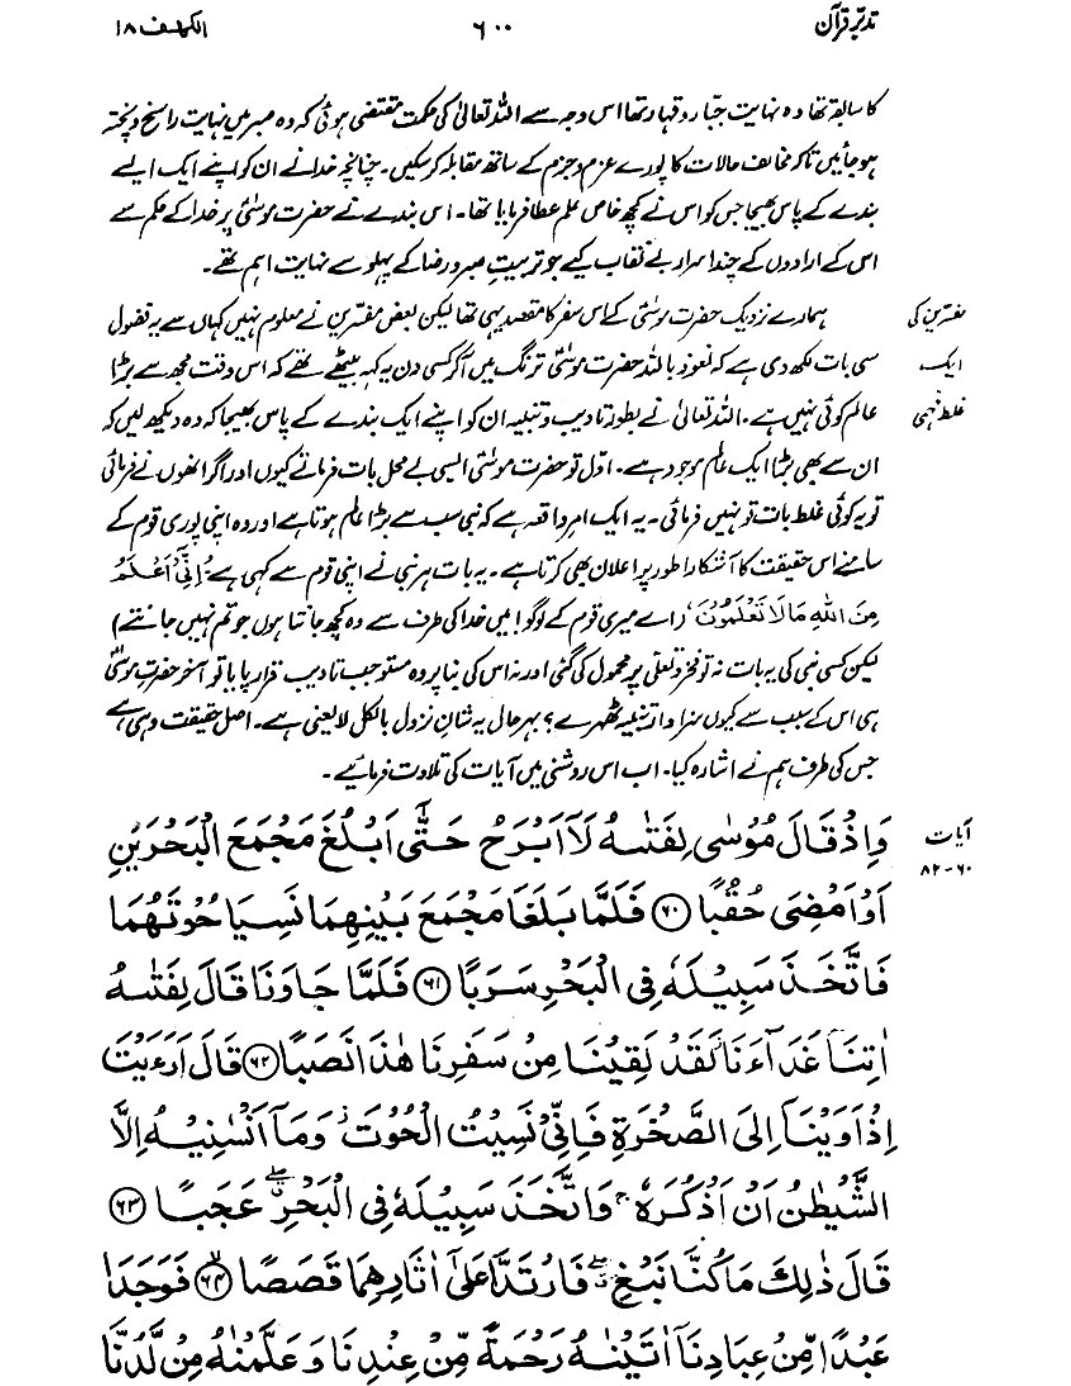 تدبّرِ قرآن ۶۰۰ الکہف ۱۸
کا سابقہ تھا وہ نہایت جبّار و قہار تھا اس وجہ سے اللہ تعالیٰ کی حکمت مقتضی ہوئی کہ وہ صبر میں نہایت راسخ و پختہ
ہو جائیں تاکہ مخالف حالات کا پورے عزم و جزم کے ساتھ مقابلہ کر سکیں۔ چنانچہ خدا نے ان کو اپنے ایک ایسے
بندے کے پاس بھیجا جس کو اس نے کچھ خاص علم عطا فرمایا تھا۔ اس بندے نے حضرت موسیٰؑ پر خدا کے حکم سے
اس کے ارادوں کے چند اسرار بے نقاب کیے جو تربیتِ صبر و رضا کے پہلو سے نہایت اہم تھے۔
مفسّرین کی
ایک
غلط فہمی
ہمارے نزدیک حضرت موسیٰؑ کے اس سفر کا مقصد یہی تھا لیکن بعض مفسّرین نے معلوم نہیں کہاں سے یہ فضول
سی بات لکھ دی ہے کہ نعوذ باللہ حضرت موسیٰؑ ترنگ میں آ کر کسی دن یہ کہہ بیٹھے تھے کہ اس وقت مجھ سے بڑا
عالم کوئی نہیں ہے۔ اللہ تعالیٰ نے بطور تادیب و تنبیہ ان کو اپنے ایک بندے کے پاس بھیجا کہ وہ دیکھ لیں کہ
ان سے بھی بڑا ایک عالم موجود ہے۔ اوّل تو حضرت موسیٰؑ ایسی بے محل بات فرماتے کیوں اور اگر انھوں نے فرمائی
تو یہ کوئی غلط بات تو نہیں فرمائی۔ یہ ایک امرِ واقعہ ہے کہ نبی سب سے بڑا عالم ہوتا ہے اور وہ اپنی پوری قوم کے
سامنے اس حقیقت کا آشکارا طور پر اعلان بھی کرتا ہے۔ یہ بات ہر نبی نے اپنی قوم سے کہی ہے: اِنِّیْٓ اَعْلَمُ
مِنَ اللّٰہِ مَا لَا تَعْلَمُوْنَ (اے میری قوم کے لوگو! میں خدا کی طرف سے وہ کچھ جانتا ہوں جو تم نہیں جانتے)
لیکن کسی نبی کی یہ بات نہ تو فخر و تعلّی پر محمول کی گئی اور نہ اس کی بنا پر وہ مستوجبِ تادیب قرار پایا تو آخر حضرت موسیٰؑ
ہی اس کے سبب سے کیوں سزاوارِ تنبیہ ٹھہرے؟ بہرحال یہ شانِ نزول بالکل لایعنی ہے۔ اصل حقیقت وہی ہے
جس کی طرف ہم نے اشارہ کیا۔ اب اس روشنی میں آیات کی تلاوت فرمائیے۔
آیات
۶۰-۸۲
وَاِذْ قَالَ مُوْسٰی لِفَتٰىهُ لَاۤ اَبْرَحُ حَتّٰۤی اَبْلُغَ مَجْمَعَ الْبَحْرَيْنِ
اَوْ اَمْضِیَ حُقُبًا ۶۰ فَلَمَّا بَلَغَا مَجْمَعَ بَيْنِهِمَا نَسِيَا حُوْتَهُمَا
فَاتَّخَذَ سَبِيْلَهٗ فِی الْبَحْرِ سَرَبًا ۶۱ فَلَمَّا جَاوَزَا قَالَ لِفَتٰىهُ
اٰتِنَا غَدَآءَنَا لَقَدْ لَقِيْنَا مِنْ سَفَرِنَا هٰذَا نَصَبًا ۶۲ قَالَ اَرَءَيْتَ
اِذْ اَوَيْنَاۤ اِلَی الصَّخْرَةِ فَاِنِّیْ نَسِيْتُ الْحُوْتَ ز وَمَاۤ اَنْسٰنِيْهُ اِلَّا
الشَّيْطٰنُ اَنْ اَذْكُرَهٗ ج وَاتَّخَذَ سَبِيْلَهٗ فِی الْبَحْرِ عَجَبًا ۶۳
قَالَ ذٰلِكَ مَا كُنَّا نَبْغِ فَارْتَدَّا عَلٰۤی اٰثَارِهِمَا قَصَصًا ۶۴ فَوَجَدَا
عَبْدًا مِّنْ عِبَادِنَاۤ اٰتَيْنٰهُ رَحْمَةً مِّنْ عِنْدِنَا وَعَلَّمْنٰهُ مِنْ لَّدُنَّا